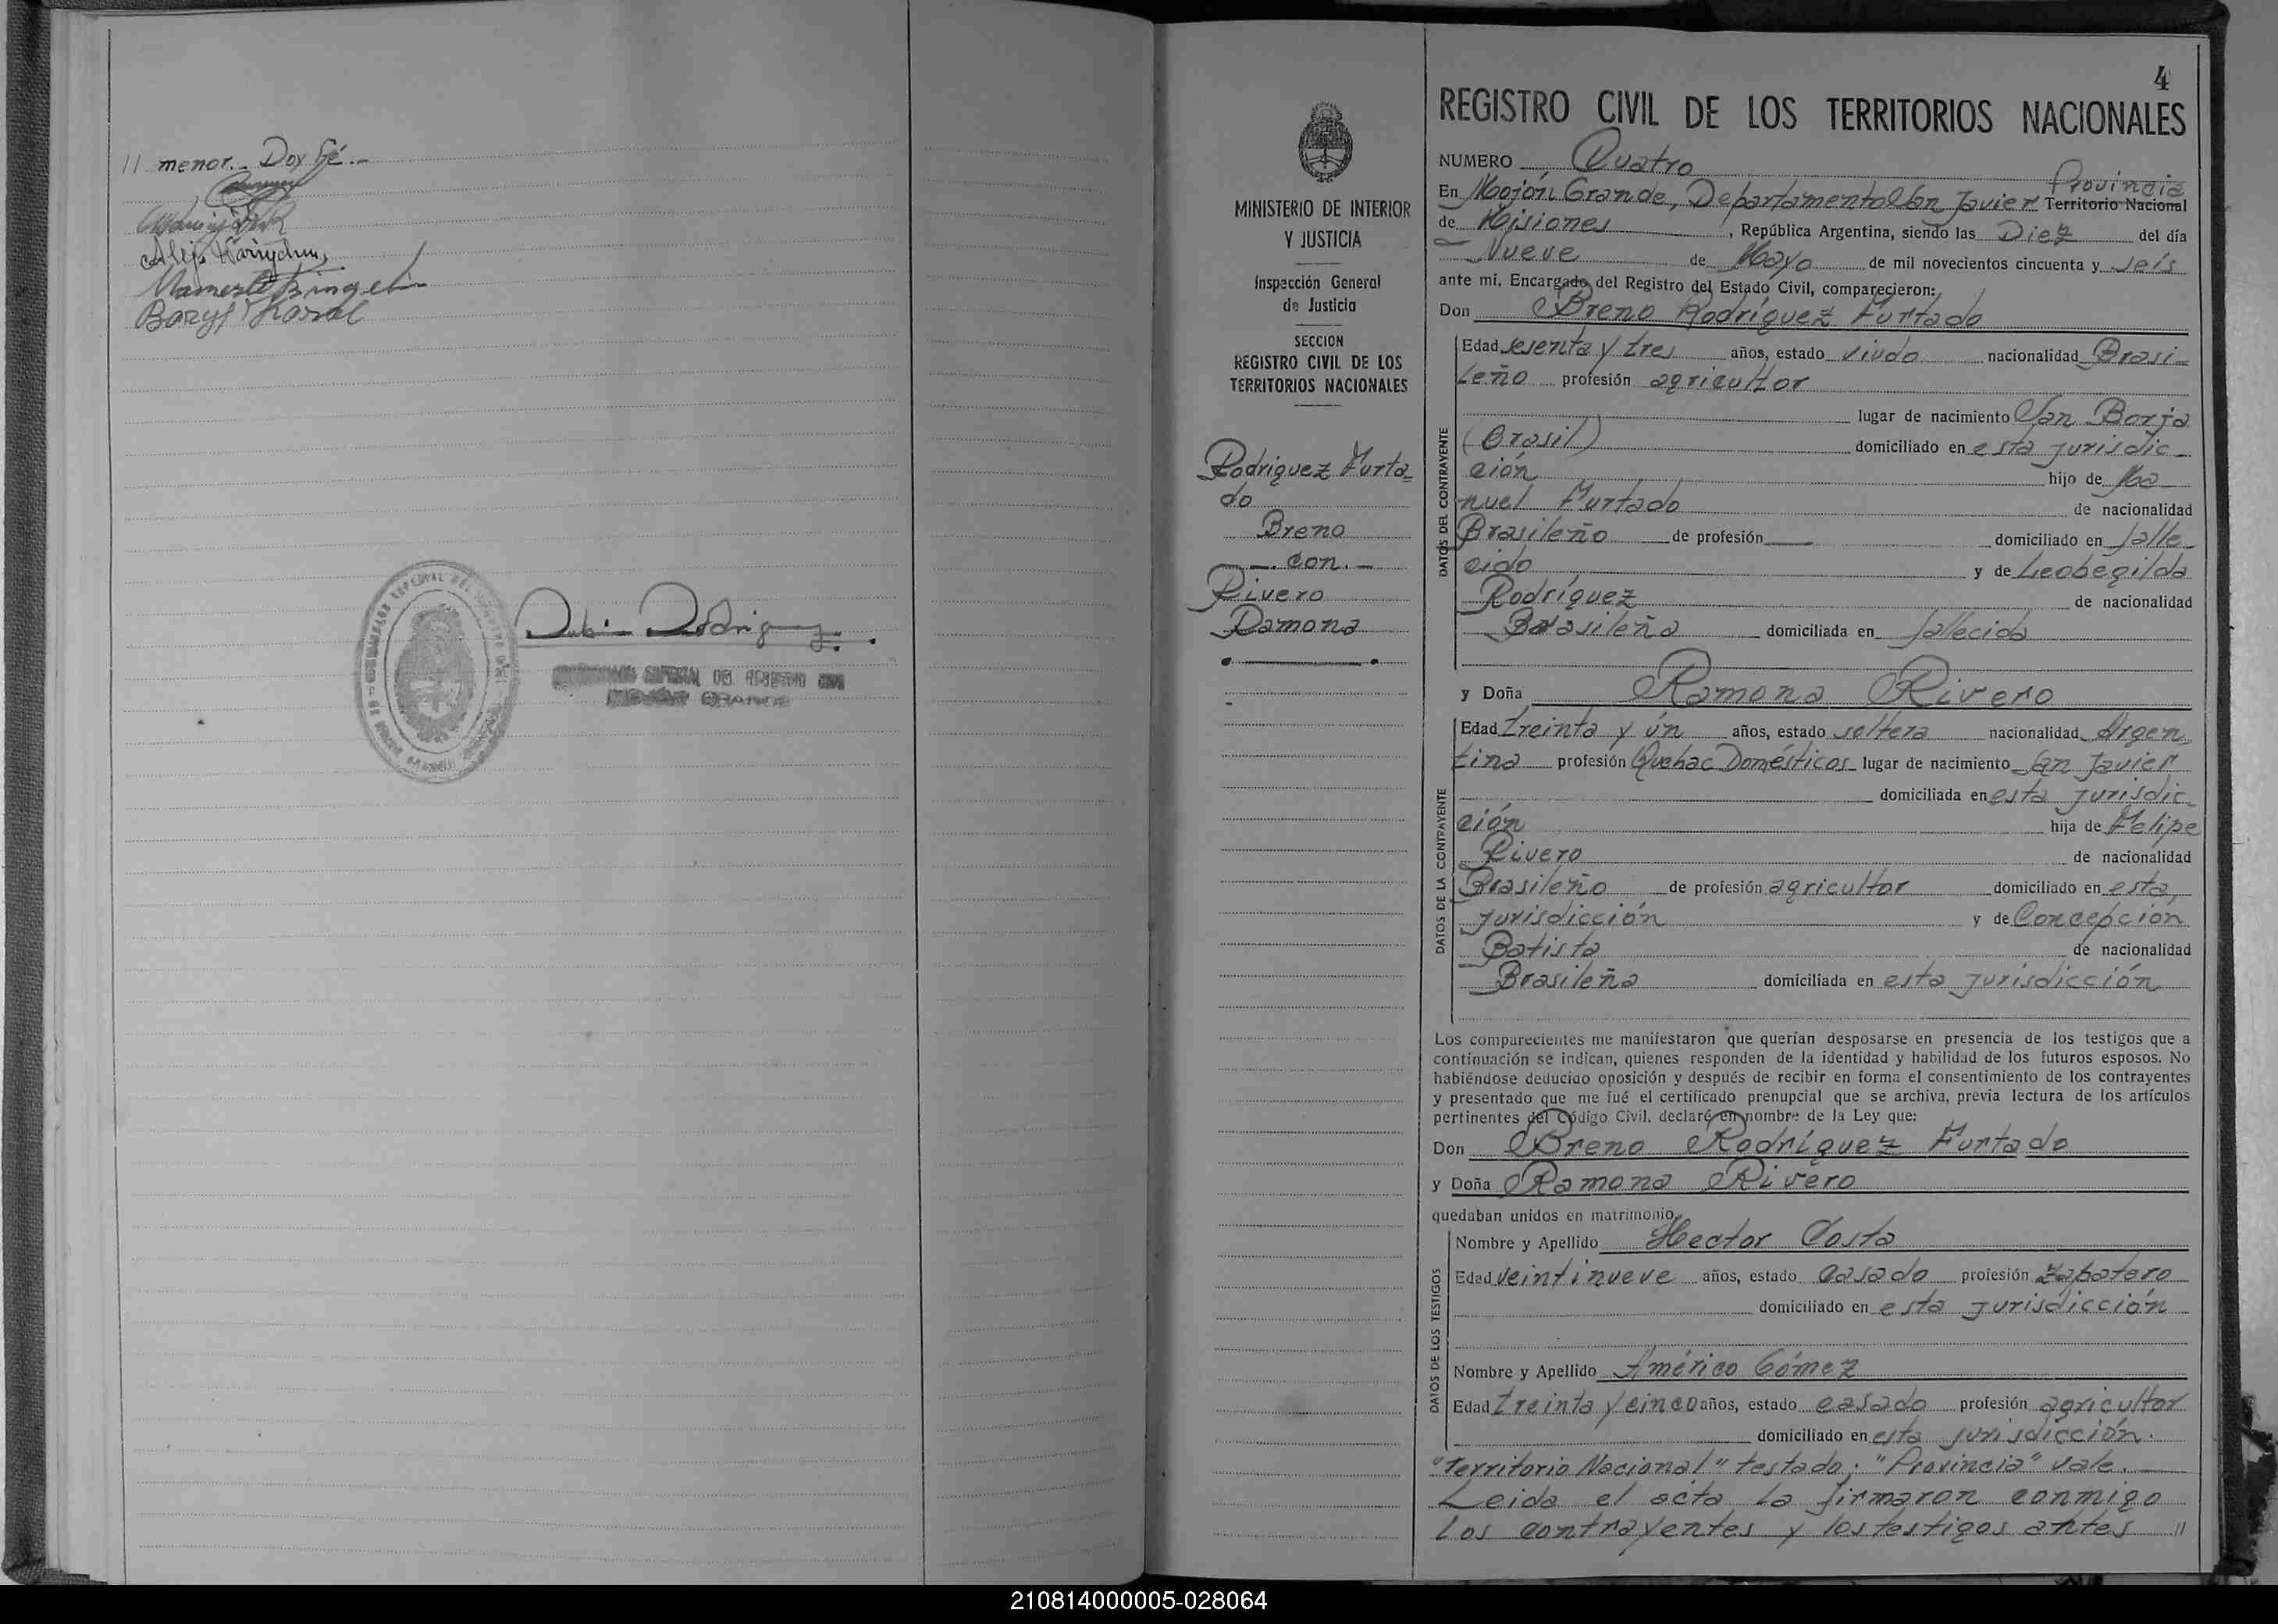 // menor.- Doy fé.-
4
REGISTRO CIVIL DE LOS TERRITORIOS NACIONALES
MINISTERIO DE INTERIOR
Y JUSTICIA
Inspección General
de Justicia
SECCION
REGISTRO CIVIL DE LOS
TERRITORIOS NACIONALES
Rodriguez Furta-
do
Breno
-. con. -
Rivero
Ramona
NUMERO Cuatro
Provincia
En Mojón Grande, Departamento San Javier Territorio Nacional
de Misiones, República Argentina, siendo las Diez del día
Nueve de Mayo de mil novecientos cincuenta y seis
ante mí, Encargado del Registro del Estado Civil, comparecieron:
Don Breno Rodríguez Furtado
DATOS DEL CONTRAYENTE
Edad sesenta y tres años, estado viudo nacionalidad Brasi-
leño profesión agricultor
lugar de nacimiento San Borja
(Brasil) domiciliado en esta jurisdic-
ción hijo de Ma-
nuel Furtado de nacionalidad
Brasileño de profesión — domiciliado en falle-
cido y de Leobegilda
Rodríguez de nacionalidad
Brasileña domiciliada en fallecida
y Doña Ramona Rivero
DATOS DE LA CONTRAYENTE
Edad treinta y ún años, estado soltera nacionalidad Argen-
tina profesión Quehac Domésticos lugar de nacimiento San Javier
domiciliada en esta jurisdic-
ción hija de Felipe
Rivero de nacionalidad
Brasileño de profesión agricultor domiciliado en esta
jurisdicción y de Concepción
Batista de nacionalidad
Brasileña domiciliada en esta jurisdicción
Los comparecientes me manifestaron que querían desposarse en presencia de los testigos que a
continuación se indican, quienes responden de la identidad y habilidad de los futuros esposos. No
habiéndose deducido oposición y después de recibir en forma el consentimiento de los contrayentes
y presentado que me fué el certificado prenupcial que se archiva, previa lectura de los artículos
pertinentes del Código Civil, declaré en nombre de la Ley que:
Don Breno Rodríguez Furtado
y Doña Ramona Rivero
quedaban unidos en matrimonio.
DATOS DE LOS TESTIGOS
Nombre y Apellido Hector Costa
Edad veintinueve años, estado casado profesión zapatero
domiciliado en esta jurisdicción
Nombre y Apellido Américo Gómez
Edad treinta y cinco años, estado casado profesión agricultor
domiciliado en esta jurisdicción.
"Territorio Nacional" testado; "Provincia" vale.
Leida el acta la firmaron conmigo
los contrayentes y los testigos antes //
210814000005-028064